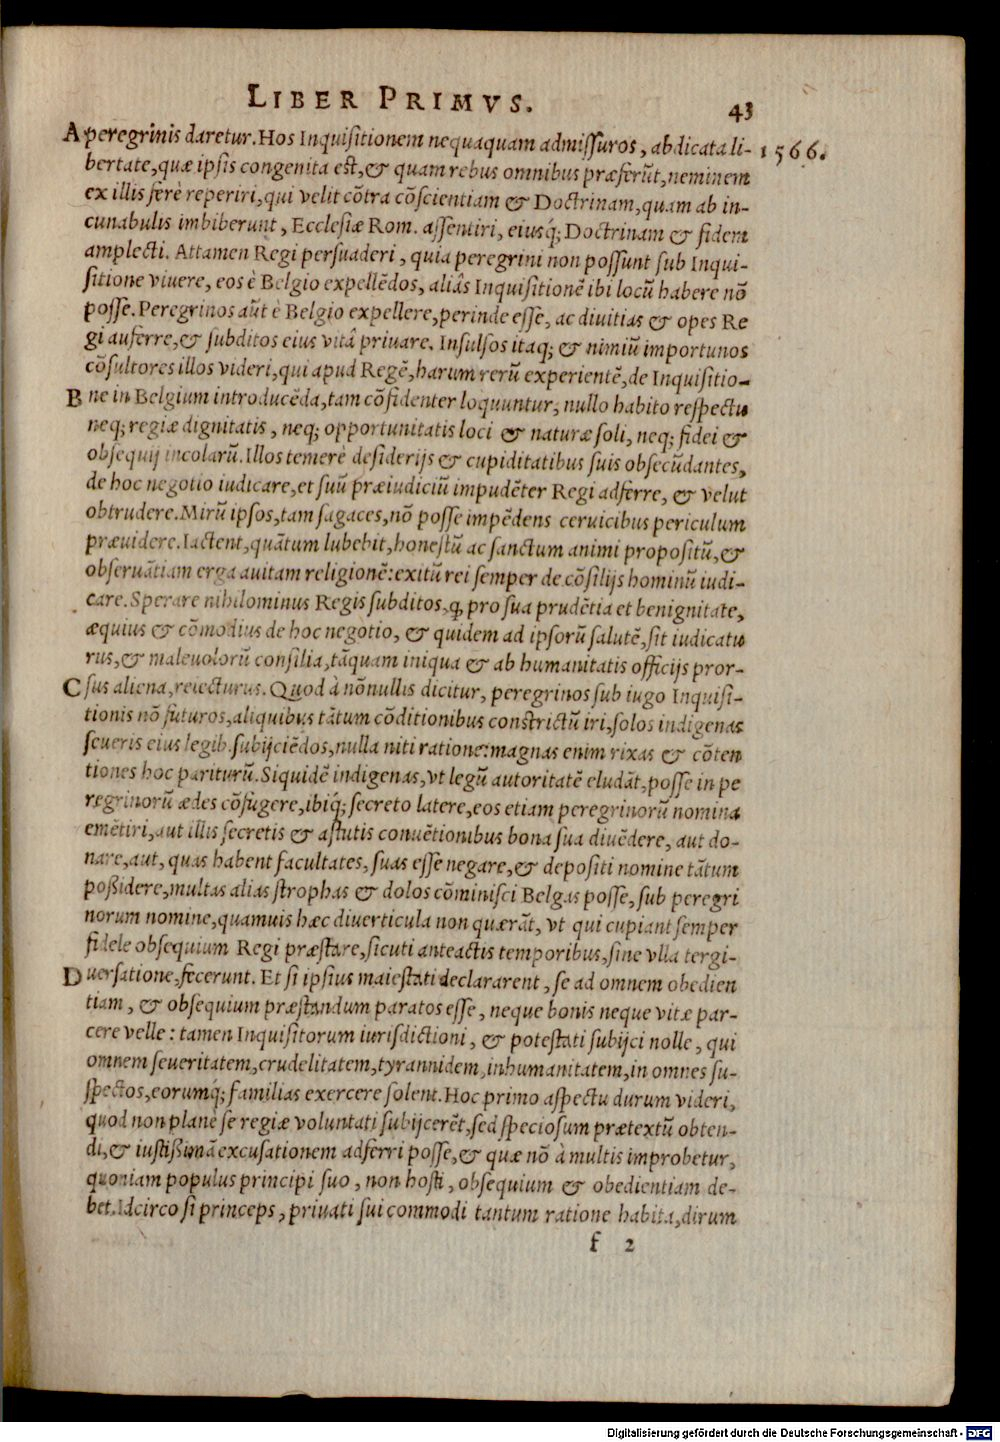 LIBER PRIMVS. 43
A peregrinis daretur. Hos Inquisitionem nequaquam admissuros, abdicata li- 1566.
bertate, quæ ipsis congenita est, & quam rebus omnibus præferũt, neminem
ex illis ferè reperiri, qui velit cõtra cõscientiam & Doctrinam, quam ab in-
cunabulis imbiberunt, Ecclesiæ Rom. assentiri, eiusq́; Doctrinam & fidem
amplecti. Attamen Regi persuaderi, quia peregrini non possunt sub Inqui-
sitione viuere, eos è Belgio expellẽdos, aliâs Inquisitionẽ ibi locũ habere nõ
posse. Peregrinos aũt è Belgio expellere, perinde esse, ac diuitias & opes Re
gi auferre, & subditos eius vitâ priuare. Insulsos itaq; & nimiũ importunos
cõsultores illos videri, qui apud Regẽ, harum rerũ experientẽ, de Inquisitio-
B ne in Belgium introducẽda, tam cõfidenter loquuntur, nullo habito respectu
neq; regiæ dignitatis, neq; opportunitatis loci & naturæ soli, neq; fidei &
obsequij incolarũ. Illos temerè desiderijs & cupiditatibus suis obsecũdantes,
de hoc negotio iudicare, et suũ præiudiciũ impudẽter Regi adferre, & velut
obtrudere. Mirũ ipsos, tam sagaces, nõ posse impẽdens ceruicibus periculum
præuidere. Iactent, quãtum lubebit, honestũ ac sanctum animi propositũ, &
obseruãtiam erga auitam religionẽ: exitũ rei semper de cõsilijs hominũ iudi-
care. Sperare nihilominus Regis subditos, ꝙ pro sua prudẽtia et benignitate,
æquius & cõmodius de hoc negotio, & quidem ad ipsorũ salutẽ, sit iudicatu
rus, & maleuolorũ consilia, tãquam iniqua & ab humanitatis officijs pror-
C sus aliena, reiecturus. Quod à nõnullis dicitur, peregrinos sub iugo Inquisi-
tionis nõ futuros, aliquibus tãtum cõditionibus constrictũ iri, solos indigenas
seueris eius legib. subijciẽdos, nulla niti ratione: magnas enim rixas & cõten
tiones hoc pariturũ. Siquidẽ indigenas, vt legũ autoritatẽ eludãt, posse in pe
regrinorũ ædes cõfugere, ibiq́; secreto latere, eos etiam peregrinorũ nomina
emẽtiri, aut illis secretis & astutis conuẽtionibus bona sua diuẽdere, aut do-
nare, aut, quas habent facultates, suas esse negare, & depositi nomine tãtum
poßidere, multas alias strophas & dolos cõminisci Belgas posse, sub peregri
norum nomine, quamuis hæc diuerticula non quærãt, vt qui cupiant semper
fidele obsequium Regi præstare, sicuti anteactis temporibus, sine vlla tergi-
D uersatione, fecerunt. Et si ipsius maiestati declararent, se ad omnem obedien
tiam, & obsequium præstandum paratos esse, neque bonis neque vitæ par-
cere velle: tamen Inquisitorum iurisdictioni, & potestati subijci nolle, qui
omnem seueritatem, crudelitatem, tyrannidem, inhumanitatem, in omnes su-
spectos, eorumq́; familias exercere solent. Hoc primo aspectu durum videri,
quod non planè se regiæ voluntati subijcerẽt, sed speciosum prætextũ obten-
di, & iustißimã excusationem adferri posse, & quæ nõ à multis improbetur,
quoniam populus principi suo, non hosti, obsequium & obedientiam de-
bet. Idcirco si princeps, priuati sui commodi tantum ratione habita, dirum
f 2
Digitalisierung gefördert durch die Deutsche Forschungsgemeinschaft - DFG